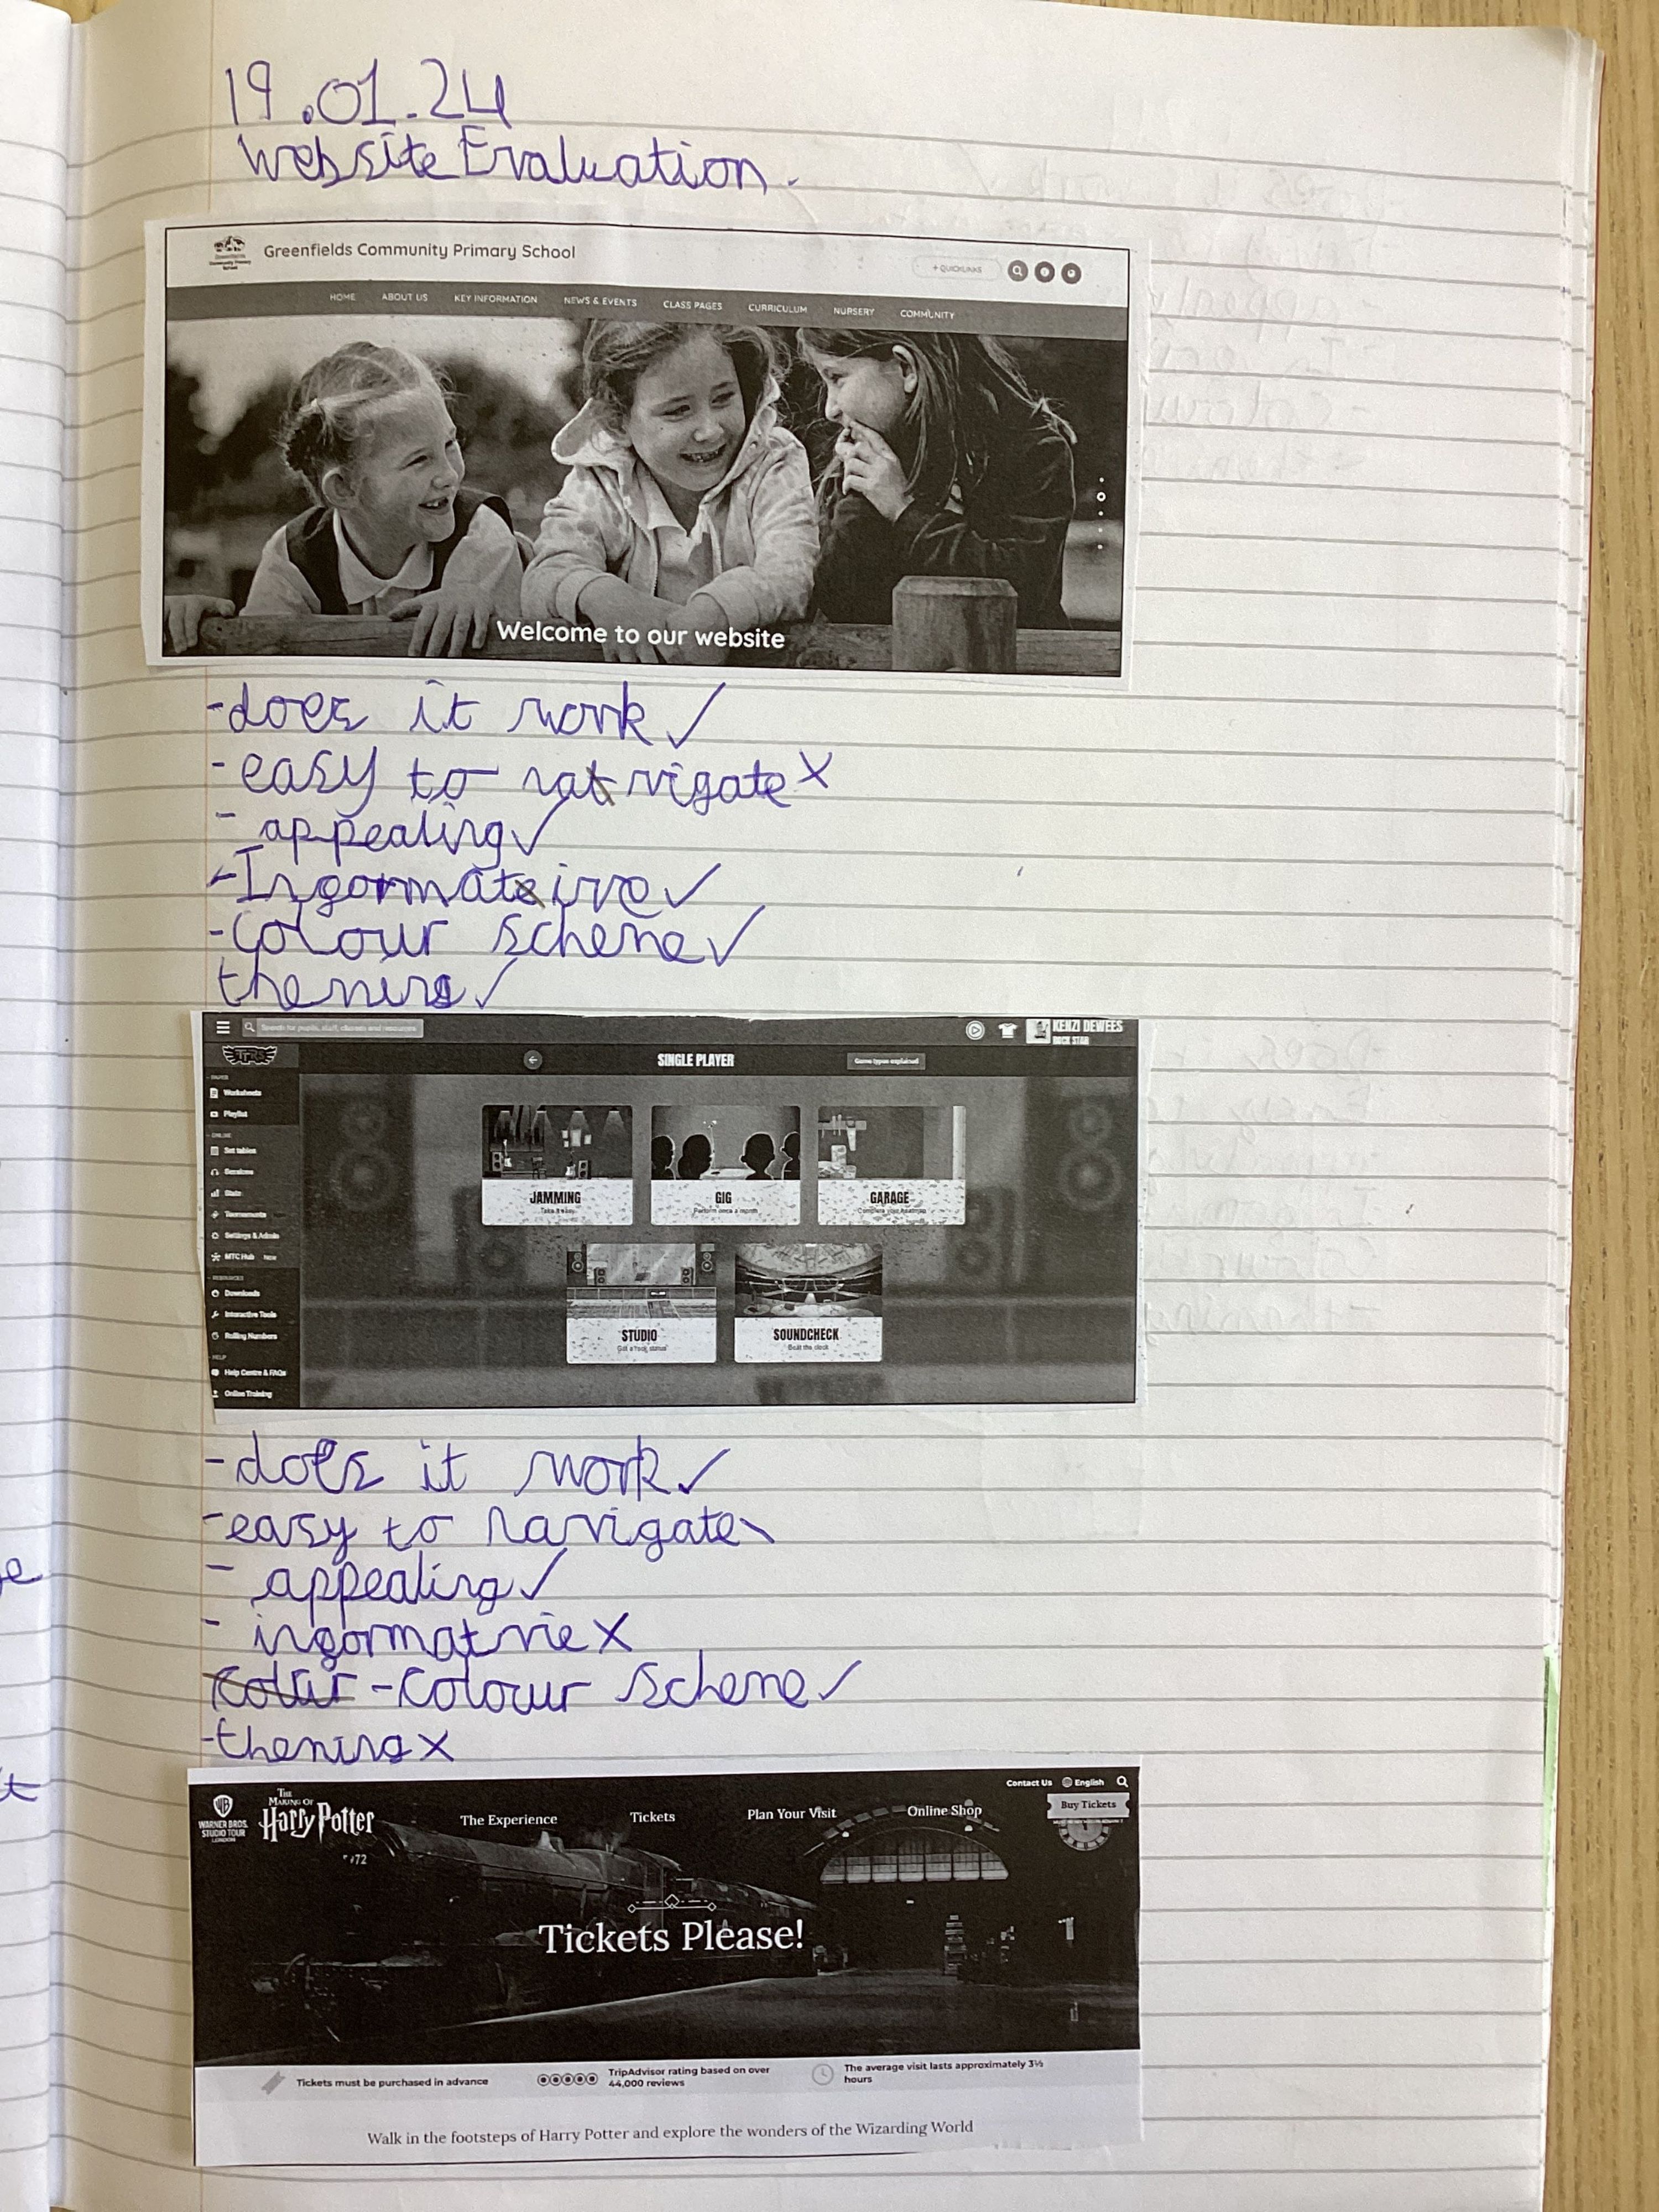 19.01.24
Website Evaluation.
Greenfields Community Primary School
+ QUICKLINKS
HOME ABOUT US KEY INFORMATION NEWS & EVENTS CLASS PAGES CURRICULUM NURSERY COMMUNITY
Welcome to our website
-does it work ✓
-easy to navigate X
- appealing ✓
-Informative ✓
-Colour scheme ✓
theming ✓
Search for pupils, staff, classes and resources
KENZI DEWEES
ROCK STAR
SINGLE PLAYER
Game types explained
Worksheets
Playlist
ONLINE
Set tables
Sessions
Stats
Tournaments
Settings & Admin
MTC Hub New
RESOURCES
Downloads
Interactive Tools
Rolling Numbers
HELP
Help Centre & FAQs
Online Training
JAMMING GIG GARAGE
Take it easy Perform once a month Complete your heatmap
STUDIO SOUNDCHECK
Get a 'rock status' Beat the clock
-does it work ✓
-easy to navigate
- appealing ✓
- informatvie X
-Colour scheme ✓
-theming X
Contact Us English
WARNER BROS.
STUDIO TOUR
LONDON
THE
MAKING OF
Harry Potter
The Experience Tickets Plan Your Visit Online Shop Buy Tickets
Tickets Please!
Tickets must be purchased in advance
TripAdvisor rating based on over
44,000 reviews
The average visit lasts approximately 3½
hours
Walk in the footsteps of Harry Potter and explore the wonders of the Wizarding World